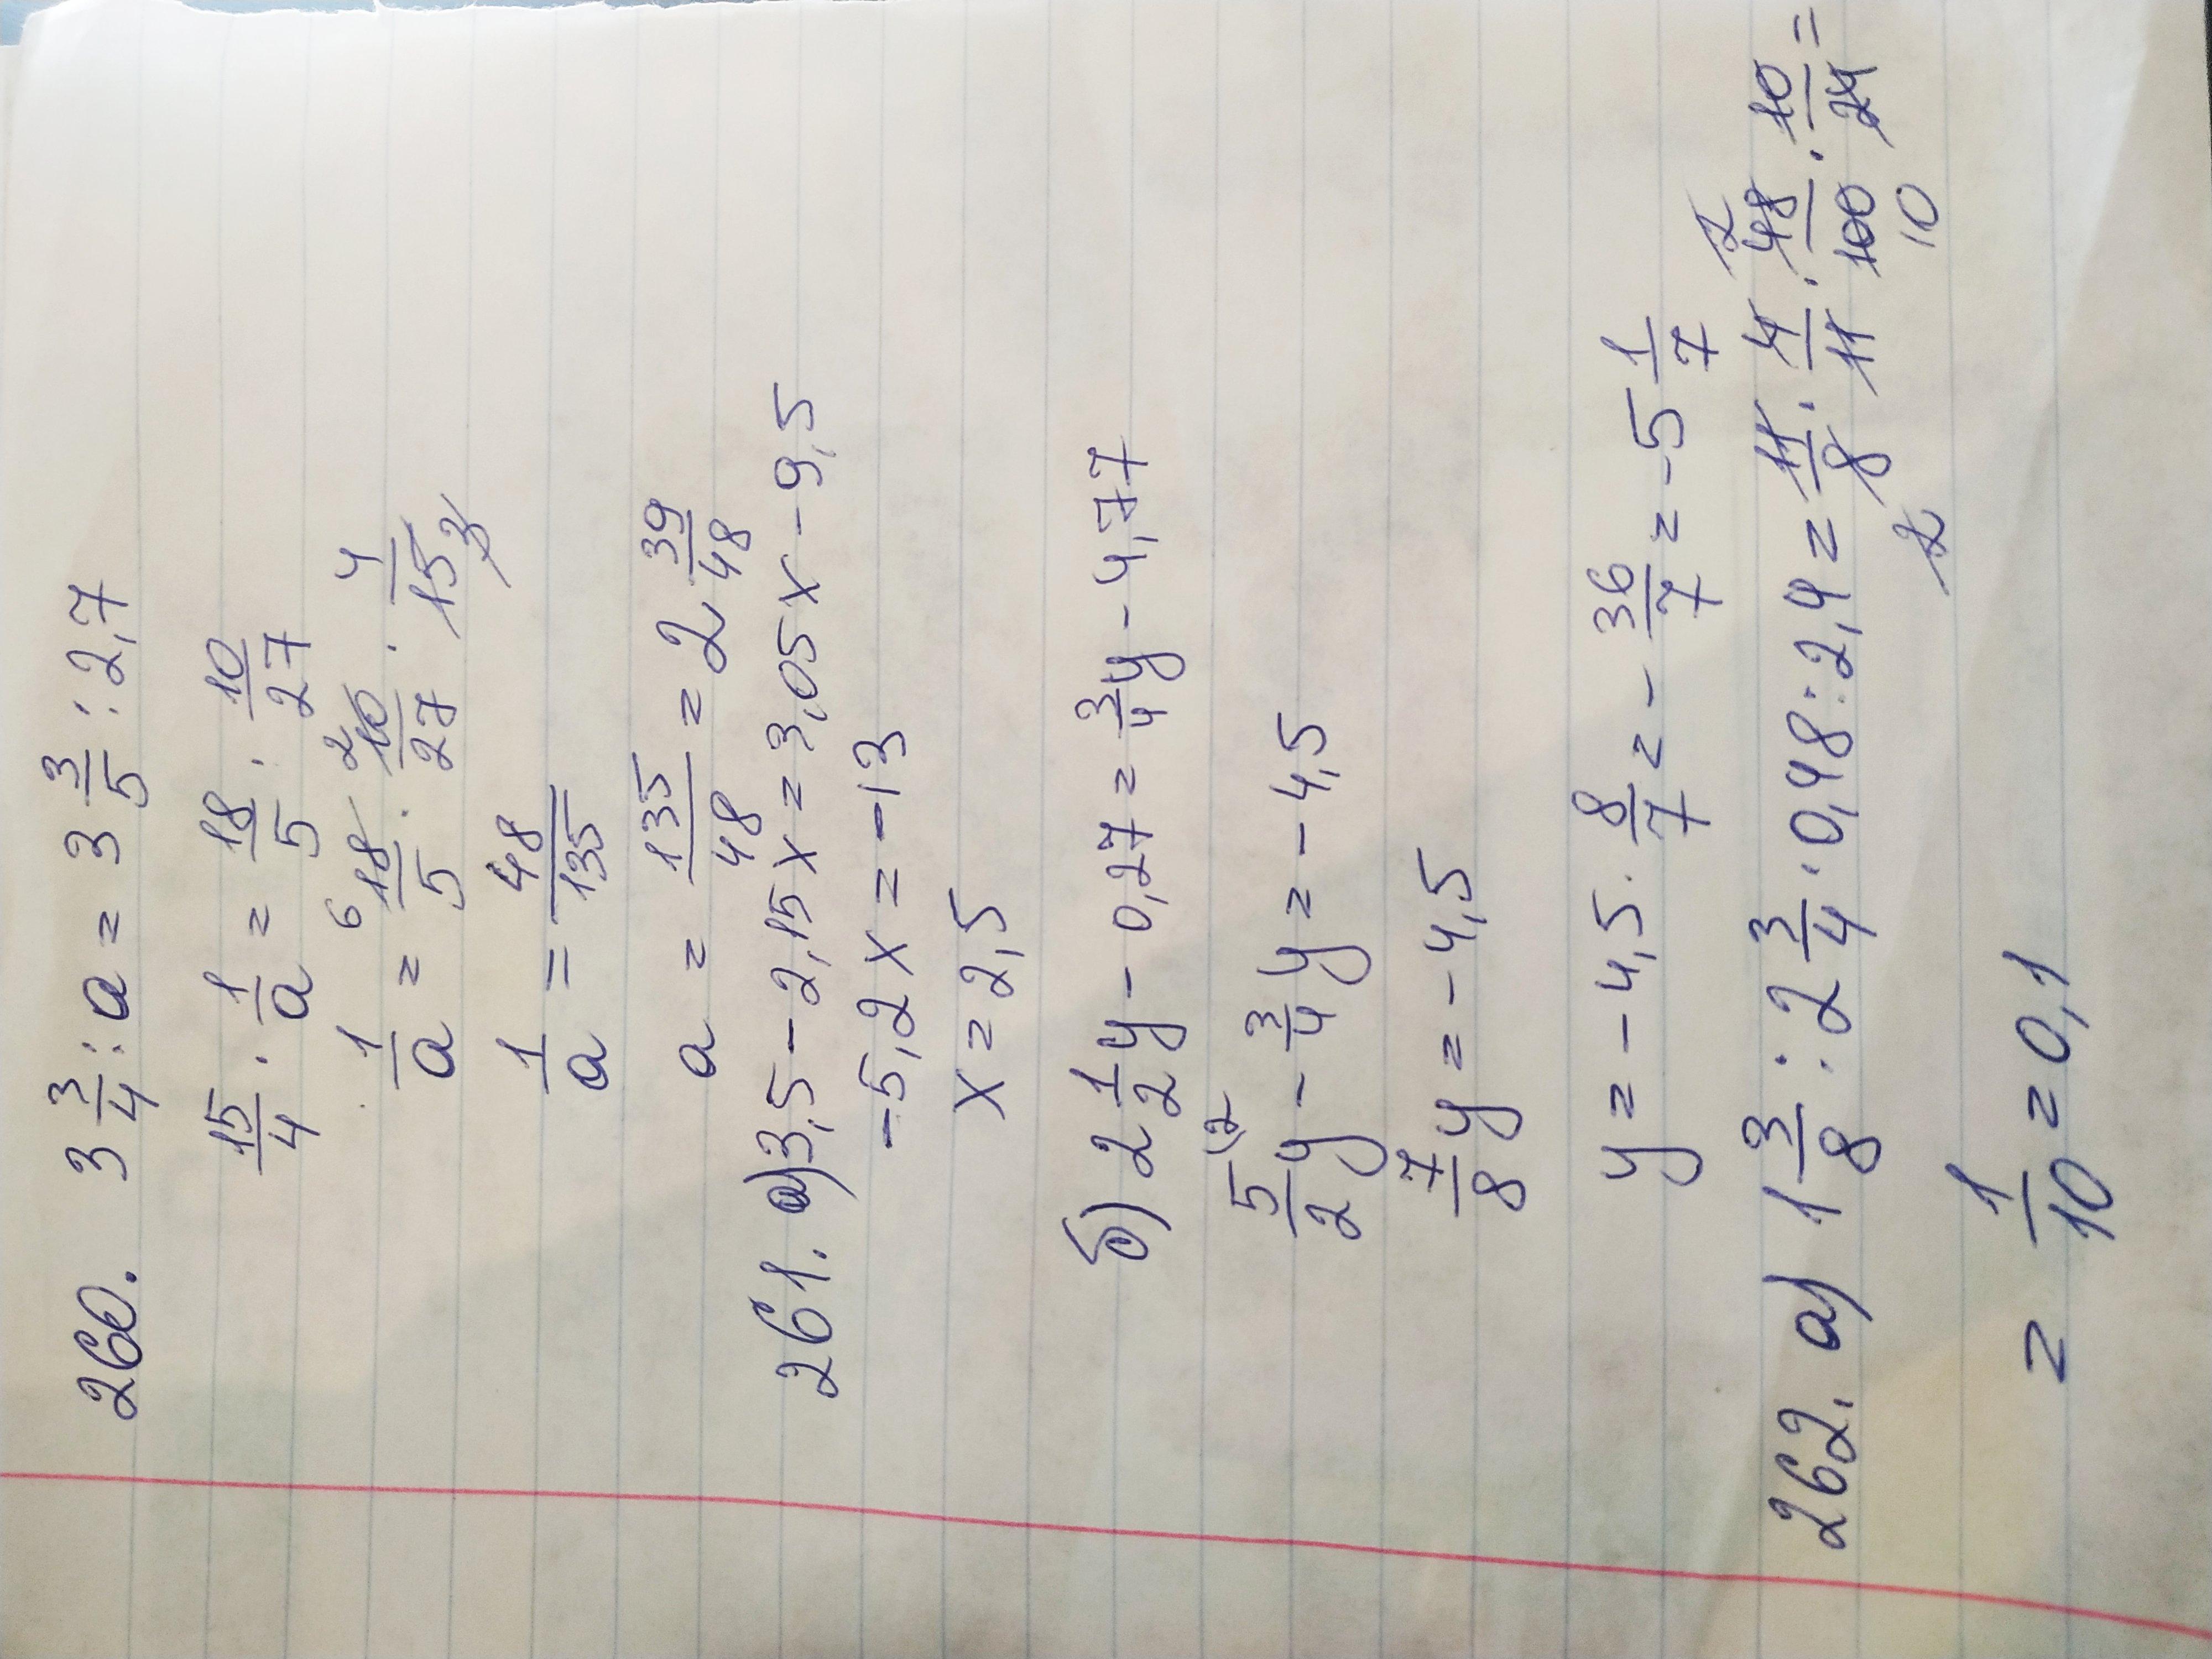 260. 3 3/4 : a = 3 3/5 : 2,7
15/4 · 1/a = 18/5 · 10/27
1/a = 6 18/5 · 2 10/27 · 4/15 3
1/a = 48/135
a = 135/48 = 2 39/48
261. а) 3,5 - 2,15x = 3,05x - 9,5
-5,2x = -13
x = 2,5
б) 2 1/2 y - 0,27 = 3/4 y - 4,77
5/2 \2 y - 3/4 y = -4,5
7/8 y = -4,5
y = -4,5 · 8/7 = -36/7 = -5 1/7
262. а) 1 3/8 : 2 3/4 · 0,48 : 2,4 = 11/8 2 · 4/11 · 2 48/100 10 · 10/24 =
= 1/10 = 0,1